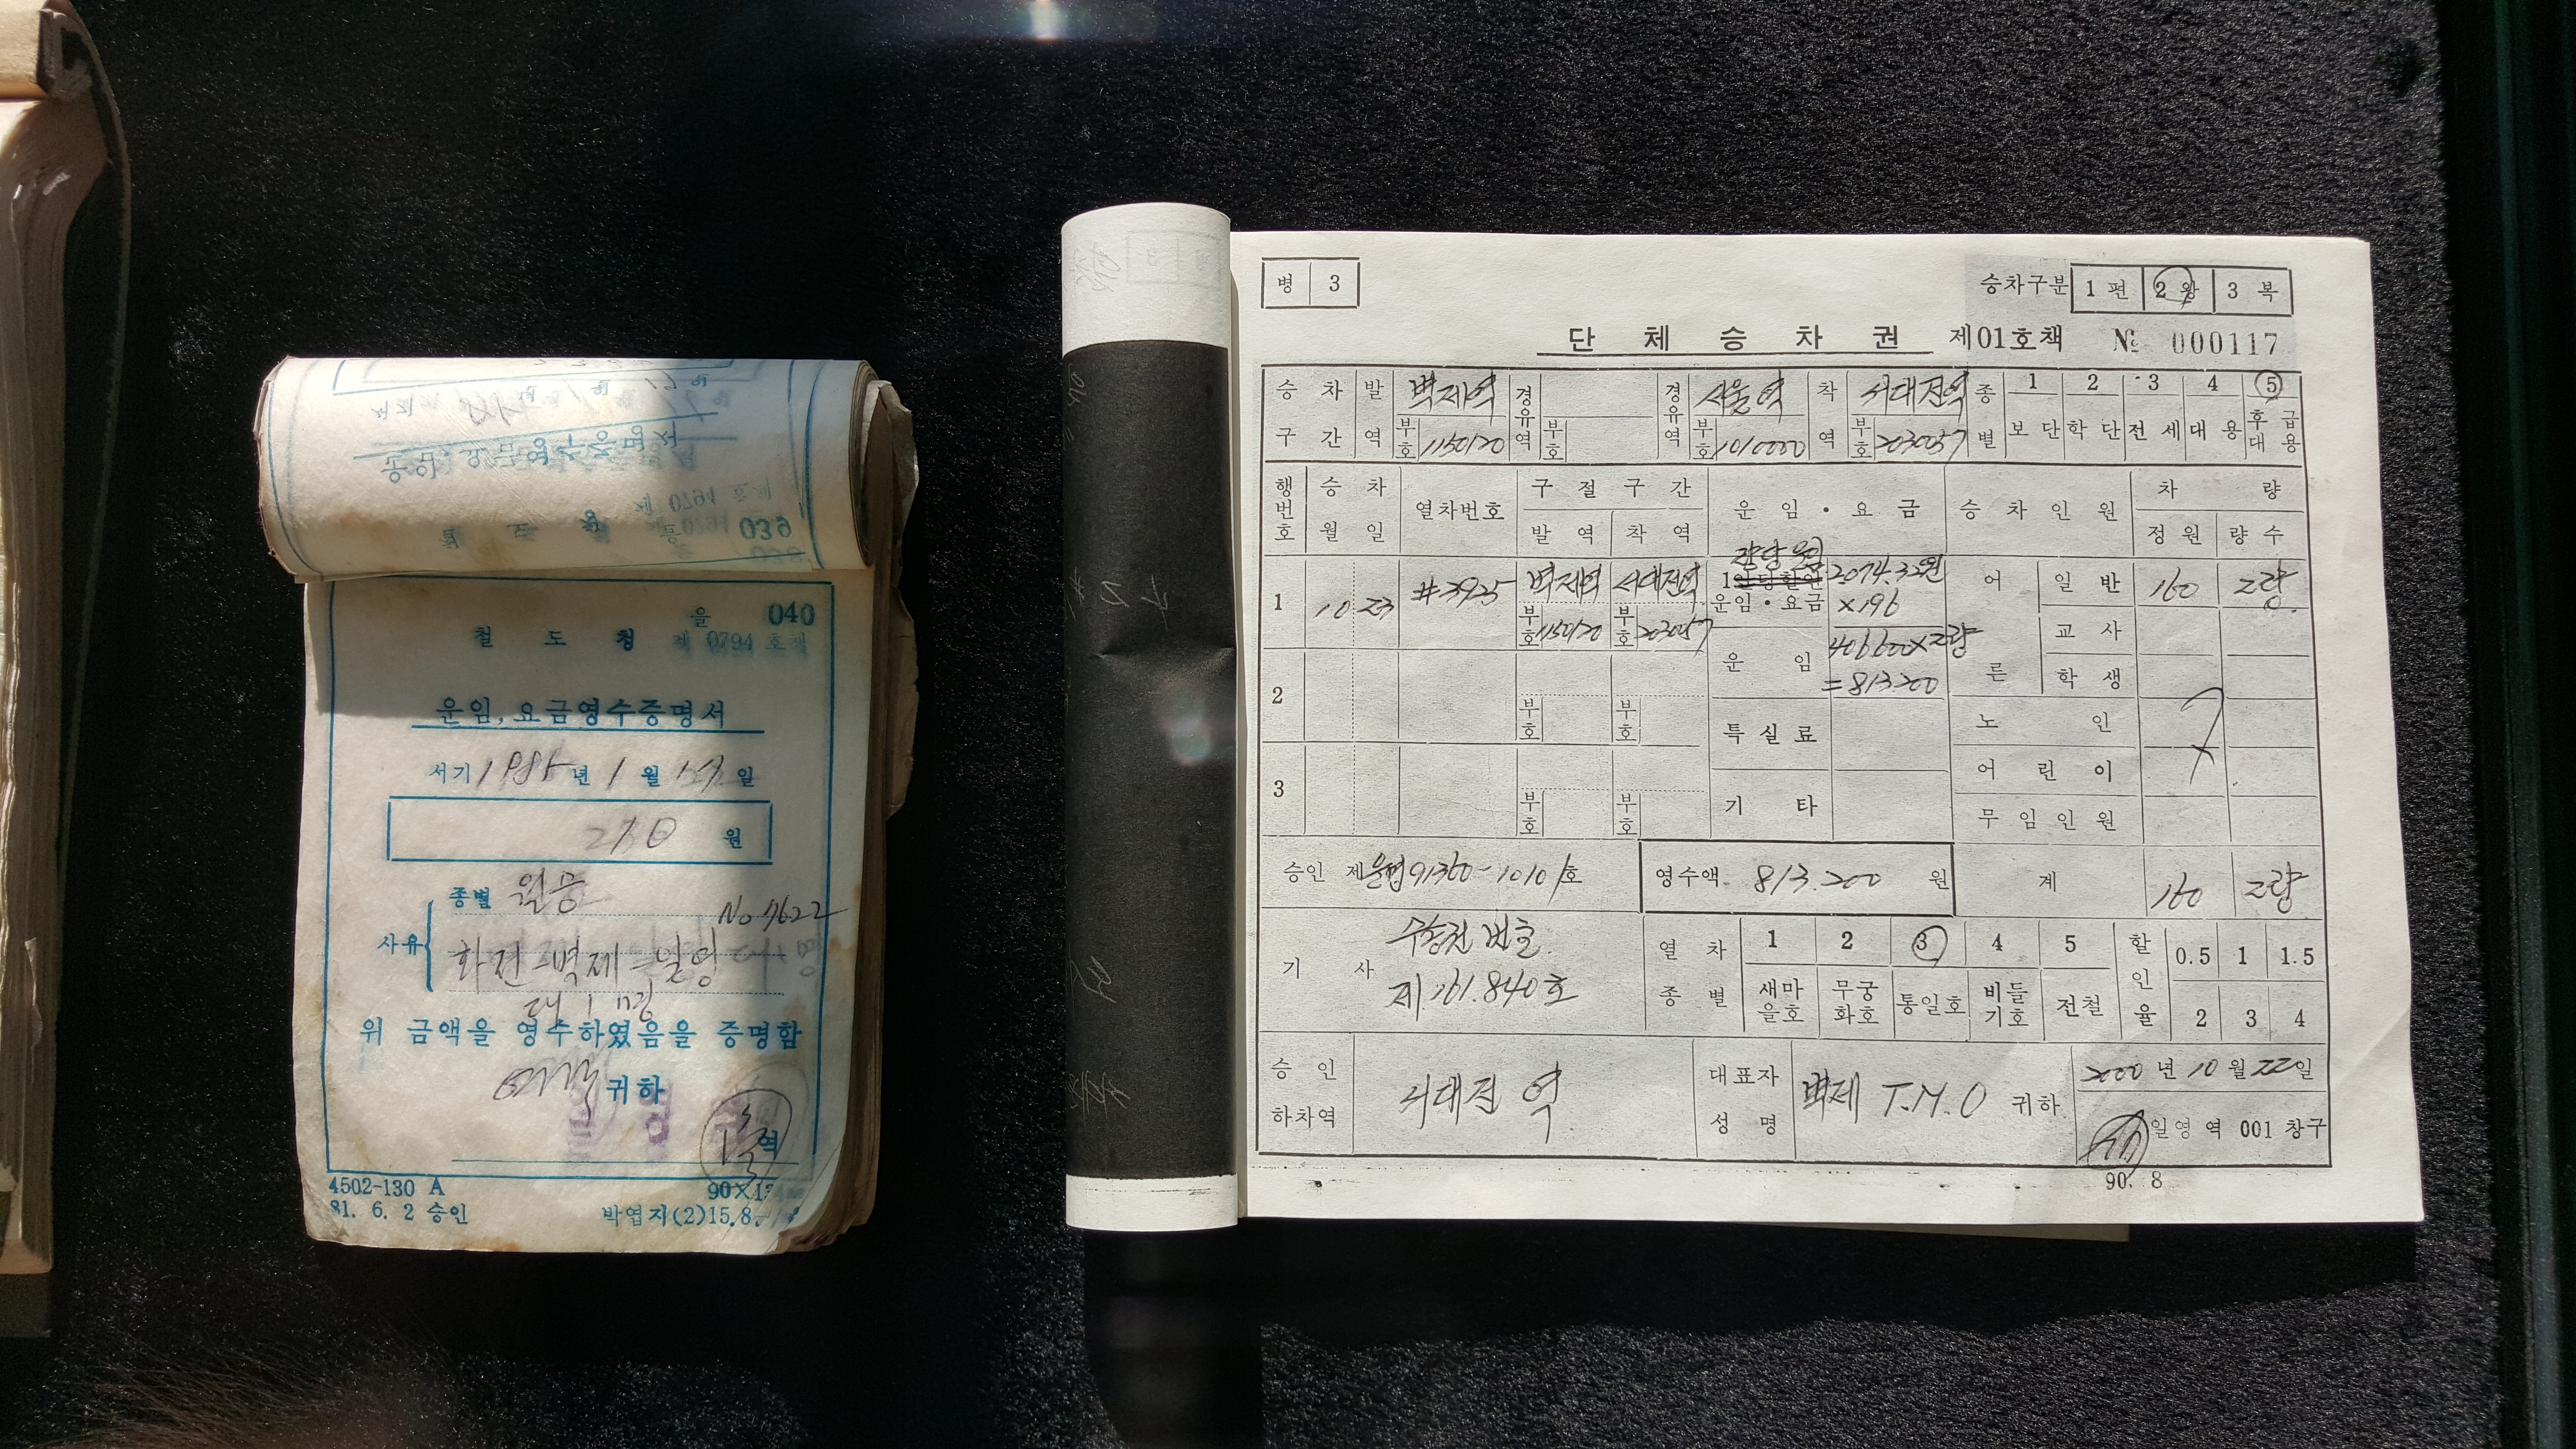 039
을 040
철 도 청 제 0794 호책
운임, 요금영수증명서
서기 1985 년 1 월 일
210 원
종별 월승
No 7622
사유
화전-벽제-일영
대 1 명
위 금액을 영수하였음을 증명함
귀하
역
4502-130 A
81. 6. 2 승인
박엽지(2)15.8.
병 3
승차구분 1 편 2 왕 3 복
단 체 승 차 권 제01호책 № 000117
승 차 구 간 발 역 벽제역 부호 1150120 경유역 부호 경유역 서울역 부호 1010000 착 역 서대전역 부호 2030057 종 별 1 보 단 2 학 단 3 전 세 4 대 용 5 후 급 대 용
행번호 승 차 월 일 열차번호 구 절 구 간 발 역 착 역 운 임 · 요 금 승 차 인 원 차 량 정 원 량 수
1 10 23 #3925 벽제역 부호 1150120 서대전역 부호 203057
량당 운임 1인당할인 운임·요금 2074.32원 ×196
운 임 406600×2량 =813200
어 른 일 반 160 2량
교 사
학 생
2 부호 부호
특 실 료
노 인
3 부호 부호
기 타
어 린 이
무 임 인 원
승인 제 운영91360-1010 호 영수액 813.200 원 계 160 2량
기 사 수송권 번호 제.161.840호
열 차 종 별 1 새마을호 2 무궁화호 3 통일호 4 비들기호 5 전철
할 인 율 0.5 1 1.5 2 3 4
승 인 하차역 서대전 역
대표자 성 명 벽제 T.M.O 귀하
2000 년 10 월 22 일
일영 역 001 창구
90. 8